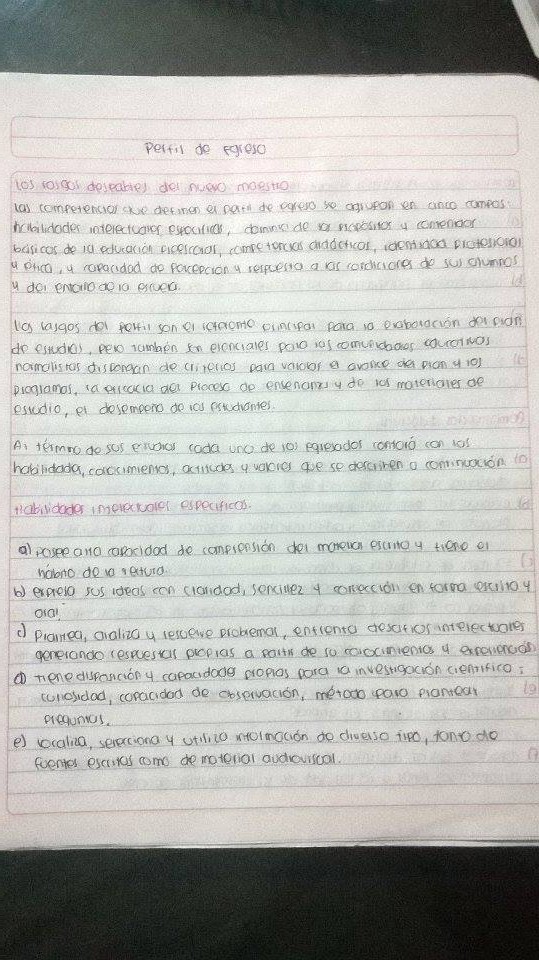 Perfil de Egreso
los rasgos deseables del nuevo maestro
las competencias que definen el perfil de egreso se agrupan en cinco campos:
habilidades intelectuales específicas, dominio de los propósitos y contenidos
básicos de la educación preescolar, competencias didácticas, identidad profesional
y ética, y capacidad de percepción y respuesta a las condiciones de sus alumnos
y del entorno de la escuela.
los rasgos del perfil son el referente principal para la elaboración del plan
de estudios, pero también son esenciales para las comunidades educativas
normalistas dispongan de criterios para valorar el avance del plan y los
programas, la eficacia del proceso de enseñanza y de los materiales de
estudio, el desempeño de los estudiantes.
Al término de sus estudios cada uno de los egresados contará con las
habilidades, conocimientos, actitudes y valores que se describen a continuación
Habilidades intelectuales específicas.
a) posee alta capacidad de comprensión del material escrito y tiene el
hábito de la lectura.
b) expresa sus ideas con claridad, sencillez y corrección en forma escrita y
oral.
c) Plantea, analiza y resuelve problemas, enfrenta desafíos intelectuales
generando respuestas propias a partir de su conocimientos y experiencias
d) tiene disposición y capacidades propias para la investigación científica:
curiosidad, capacidad de observación, método para plantear
preguntas.
e) localiza, selecciona y utiliza información de diverso tipo, tanto de
fuentes escritas como de material audiovisual.